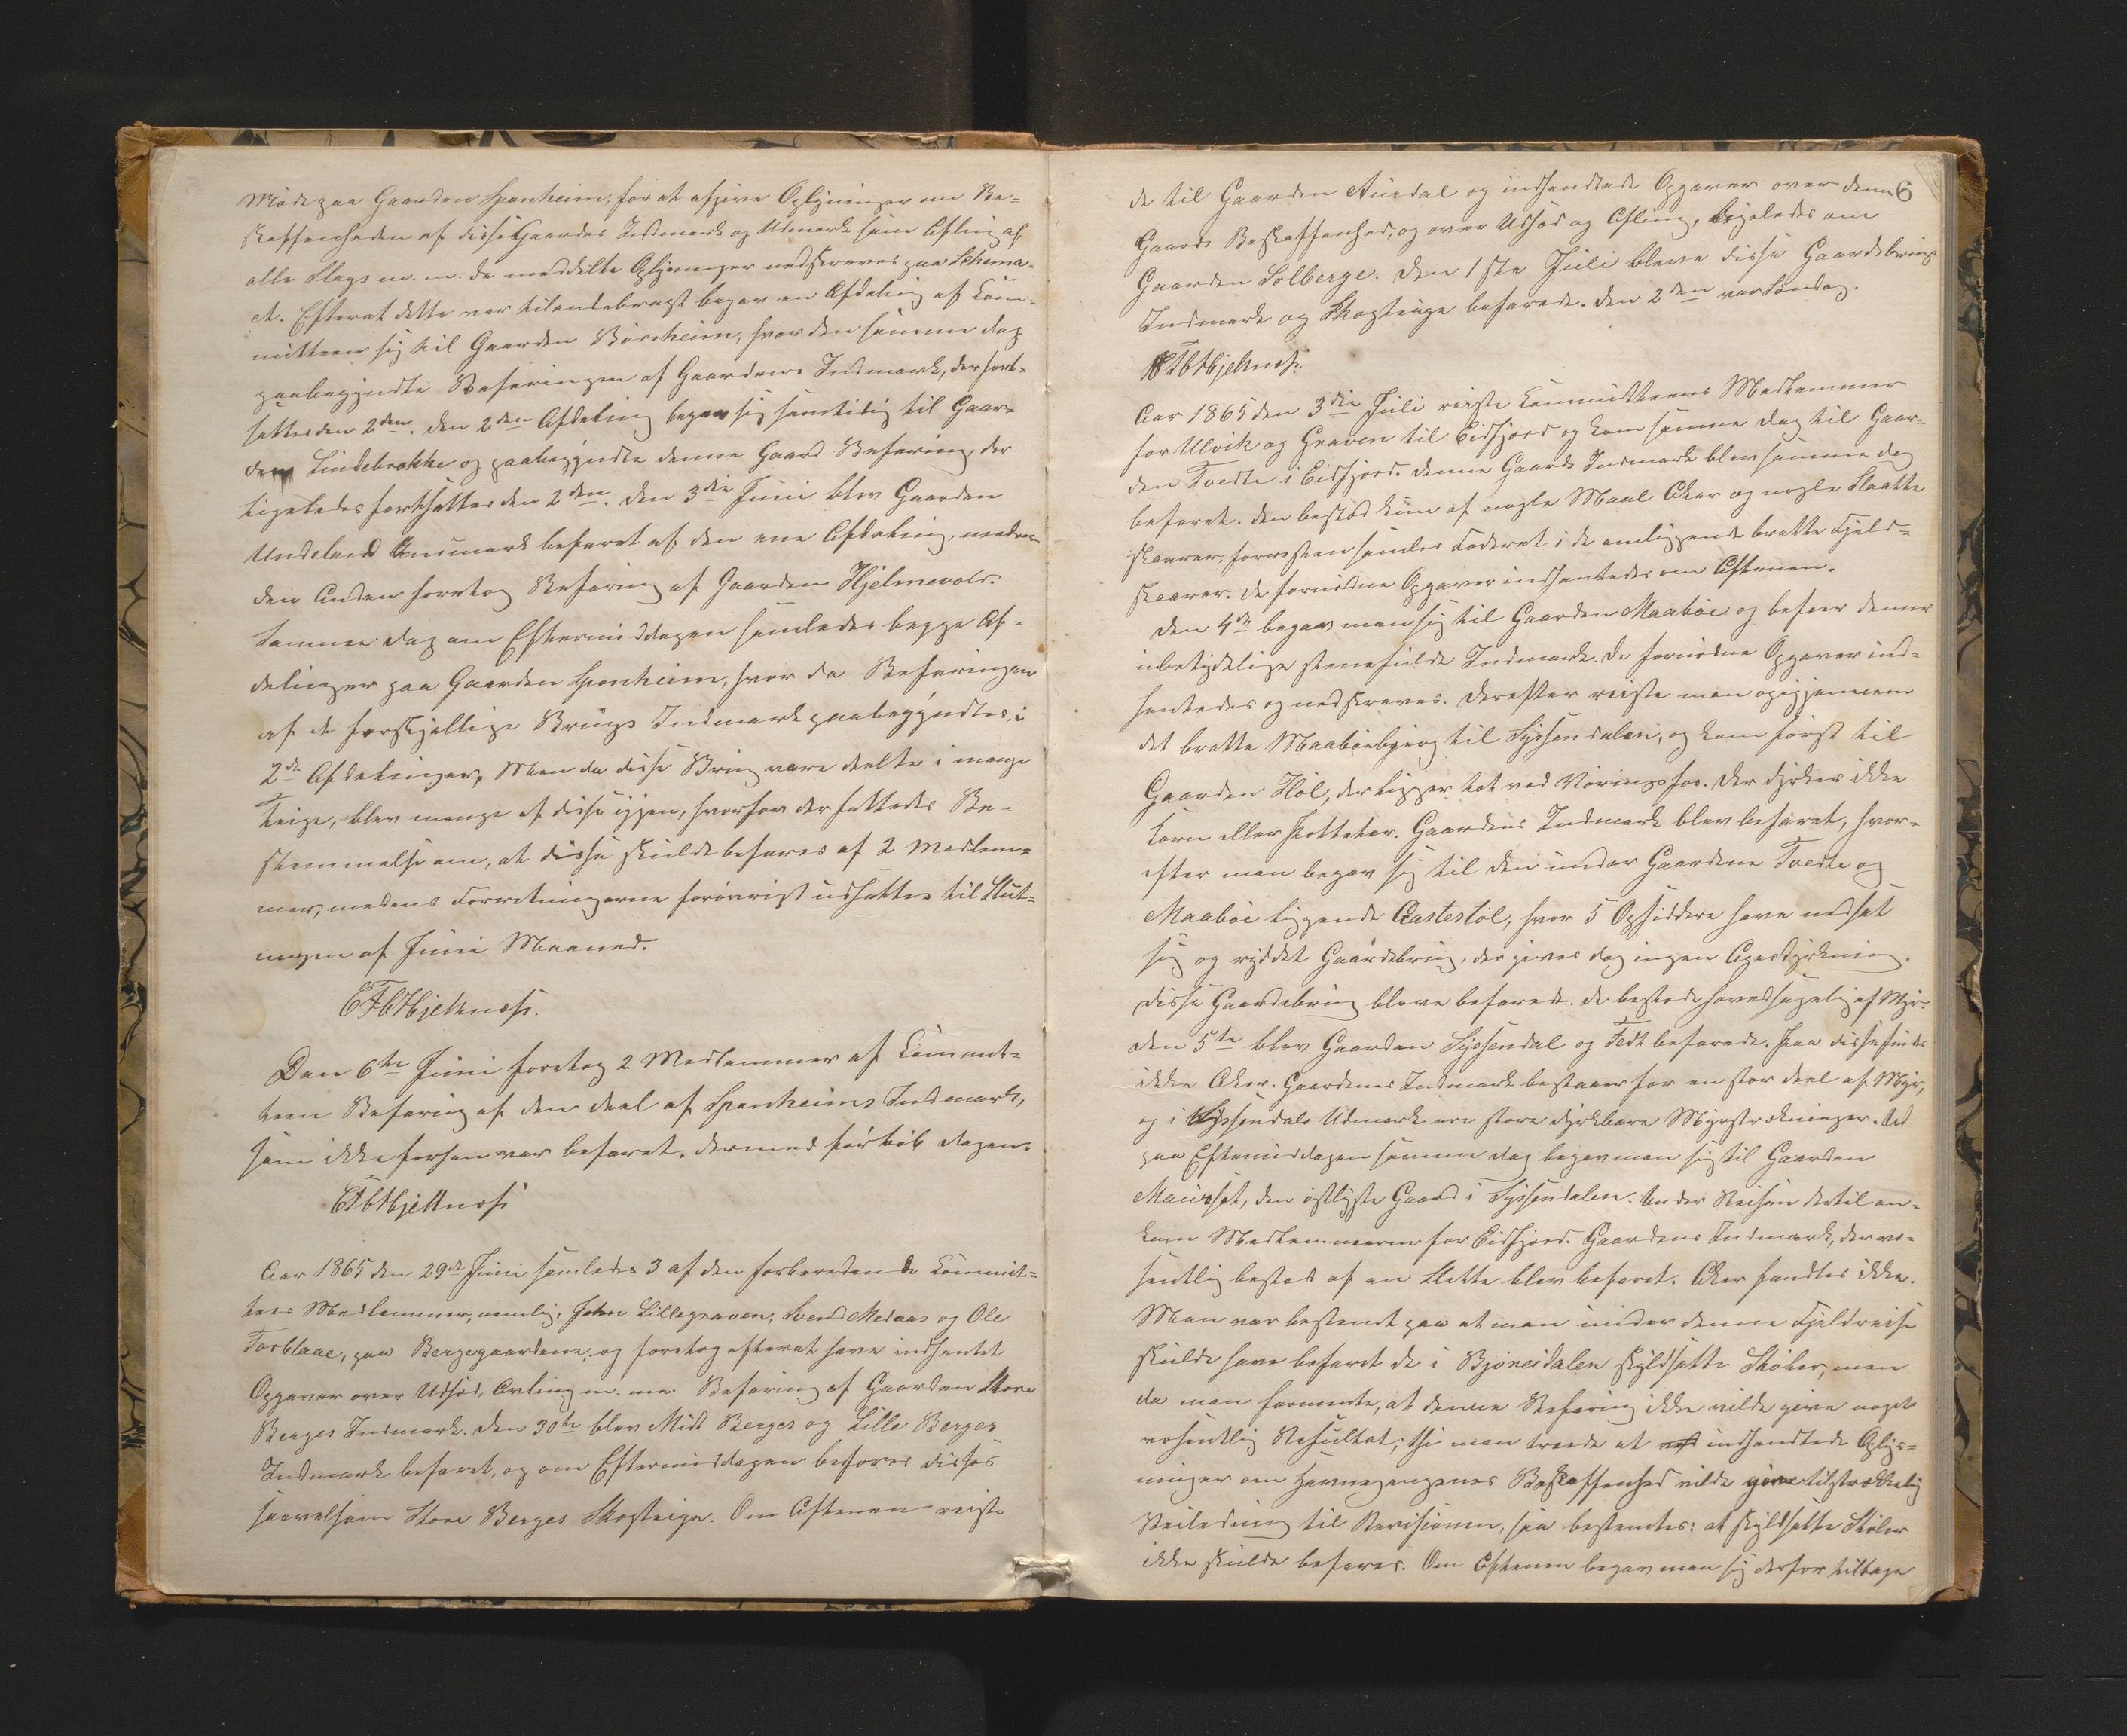 Møde paa Gaarden Spanheim, for at afgive Oplysninger om Be-
skaffenheden af disse Gaardes Indmark og Udmark samt Afling af
alle Slags m. m. De meddelte Oplysninger nedskreves paa Schema-
et. Efterat dette var tilendebragt begav en Afdeling af Com-
mitteen sig til Gaarden Børsheim, hvor den samme Dag
paabegyndte Befaringen af Gaardens Indmark, der fort-
sattes den 2den. Den 2den Afdeling begav sig samtidig til Gaar-
den Lindebrække og paabegyndte denne Gaards Befaring, der
ligeledes fortsattes den 2den. Den 3die Juni blev Gaarden
Undelands Indmark befaret af den ene Afdeling, medens
den Anden foretog Befaring af Gaarden Hjelmevold.
Samme Dag om Eftermiddagen samledes begge Af-
delinger paa Gaarden Spanheim, hvor da Befaringen
af de forskjellige Brugs Indmark paabegyndtes i
2de Afdelinger, Men da disse Brug vare deelte i mange
Teige, blev mange af disse igjen, hvorfor der fattedes Be-
stemmelse om, at disse skulde befares af 2 Medlem-
mer, medens Forretningerne forøvrigt udsattes til Slut-
ningen af Juni Maaned.
Hjeltnæs.
Den 6te Juni foretog 2 Medlemmer af Commit-
teen Befaring af den Deel af Spanheims Indmark,
som ikke forhen var befaret. Dermed forløb Dagen.
Hjeltnæs
Aar 1865 den 29de Juni samledes 3 af den forberedende Commit-
tees Medlemmer, nemlig: John Lillegraven, Svend Medaas og Ole
Torblaae, paa Bergegaardene, og foretog efterat have indhentet
Opgaver over Udsæd, Avling m. m. Befaring af Gaarden Store
Berges Indmark. Den 30te blev Midt Berges og Lille Berges
Indmark befaret, og om Eftermiddagen befores disses
saavelsom Store Berges Skogteige. Om Aftenen reiste
6
de til Gaarden Aurdal og indhentede Opgaver over denne
Gaards Beskaffenhed, og over Udsæd og Afling, ligeledes om
Gaarden Solberge. Den 1ste Juli bleve disse Gaardebrugs
Indmark og Skogteige befarede. Den 2den var Søndag.
Hjeltnæs.
Aar 1865 den 3die Juli reiste Committeens Medlemmer
for Ulvik og Graven til Eidfjord og kom samme Dag til Gaar-
den Tvedte i Eidfjord. Denne Gaards Indmark blev samme Dag
befaret. Den bestod kun af nogle Maal Aker og nogle Slaatte
skaarer, forresten samles Foderet i de omliggende bratte Fjeld-
skaarer. De fornødne Opgaver indhentedes om Aftenen.
Den 4de begav man sig til Gaarden Maabøe og befoer denne
ubetydelige stenefulde Indmark. De fornødne Opgaver ind-
hentedes og nedskreves. Derefter reiste man opigjennem
det bratte Maabøebjerg til Syssendalen, og kom først til
Gaarden Høl, der ligger tet ved Vøringsfos. Der dyrkes ikke
Korn eller Potteter. Gaardens Indmark blev befaret, hvor-
efter man begav sig til den under Gaardene Tvedte og
Maabøe liggende Garstestøl, hvor 5 Opsiddere have nedsat
sig og ryddet Gaardebrug, der gives dog ingen Agerdyrkning.
Disse Gaardebrug bleve befarede. De bestode hovedsagelig af Myr.
Den 5te blev Gaarden Syssendal og Fedt befarede. Paa disse findes
ikke Aker. Gaardenes Indmark bestaaer for en stor Deel af Myr,
og i Syssendals Udmark ere store dyrkbare Myrstrækninger. Ud
paa Eftermiddagen samme Dag begav man sig til Gaarden
Maursæt, den østligste Gaard i Syssendalen. Under Reisen dertil an-
kom Medlemmerne for Eidfjord. Gaardens Indmark, der væ-
sentlig bestod af en Slette blev befaret. Aker fandtes ikke.
Man var bestemt paa at man under denne Fjeldreise
skulde have befaret de i Bjøreidalen skyldsatte Støler, men
da man formente, at denne Befaring ikke vilde give noget
væsentlig Resultat; thi man troede at indhentede Oplys-
ninger om Havnegangenes Beskaffenhed vilde give tilstrækkelig
Veiledning til Revisionen, saa bestemtes: at skyldsatte Støler
ikke skulde befares. Om Aftenen begav man sig derfor tilbage